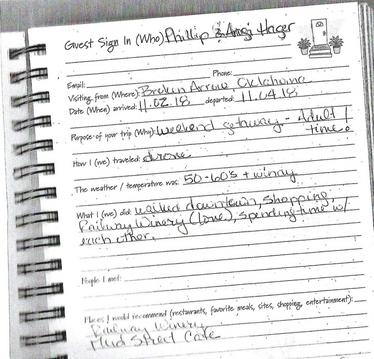 Guest Sign In (Who) Phillip & Angi Hager
Email: Phone:
Visiting from (Where): Broken Arrow, Oklahoma
Date (When) arrived: 11.02.18 departed: 11.04.18
Purpose of your trip (Why): weekend getaway - adult
time!
How I (we) traveled: drove
The weather / temperature was: 50-60's + windy
What I (we) did: walked downtown, shopping,
Railway Winery (love), spending time w/
each other.
People I met:
Places I would recommend (restaurants, favorite meals, sites, shopping, entertainment):
Railway Winery
Mud Street Cafe